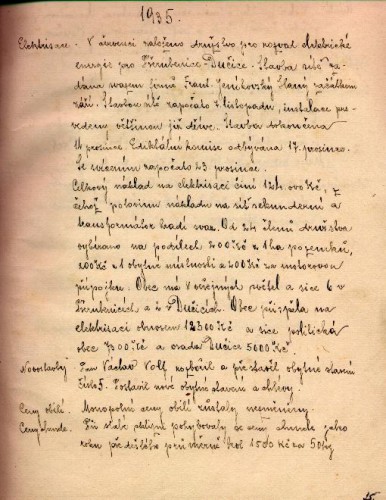 1935.
Elektrisace. V červenci založeno družstvo pro rozvod elektrické
energie pro Bučice. Stavba sítě za-
dána firmě Frant. Slaný začátkem
září. Stavba sítě započato 7. listopadu, instalace pro-
vedeny většinou již dříve. Stavba dokončena
14 prosince. Ediktální komise odbývána 17. prosince.
Se svícením započato 23 prosince.
Celkový náklad na elektrisaci činí Kč, z
čehož polovinu nákladu na síť sekunderní a
transformátor hradí svaz. Od 24 členů družstva
vybíráno na podílech 200 Kč z 1 ha pozemků,
100 Kč z 1 obytné místnosti a 200 Kč za motorovou
přípojku. Obec má 8 veřejných světel a sice 6 v
a 2 v Bučicích. Obec přispěla na
elektrisaci obnosem 12300 Kč a sice politická
obec 7300 Kč a osada Bučice 5000 Kč
Novostavby Pan Václav Volf rozbořil a přestavil obytné stavení
čís. 5. Postavil nové obytné stavení a chlévy.
Ceny obilí. Monopolní ceny obilí zůstaly nezměněny.
Ceny chmele. Při stálé poptávce pohybovaly se ceny chmele jako
roku předešlého průměrně kol 1500 Kč za 50 kg